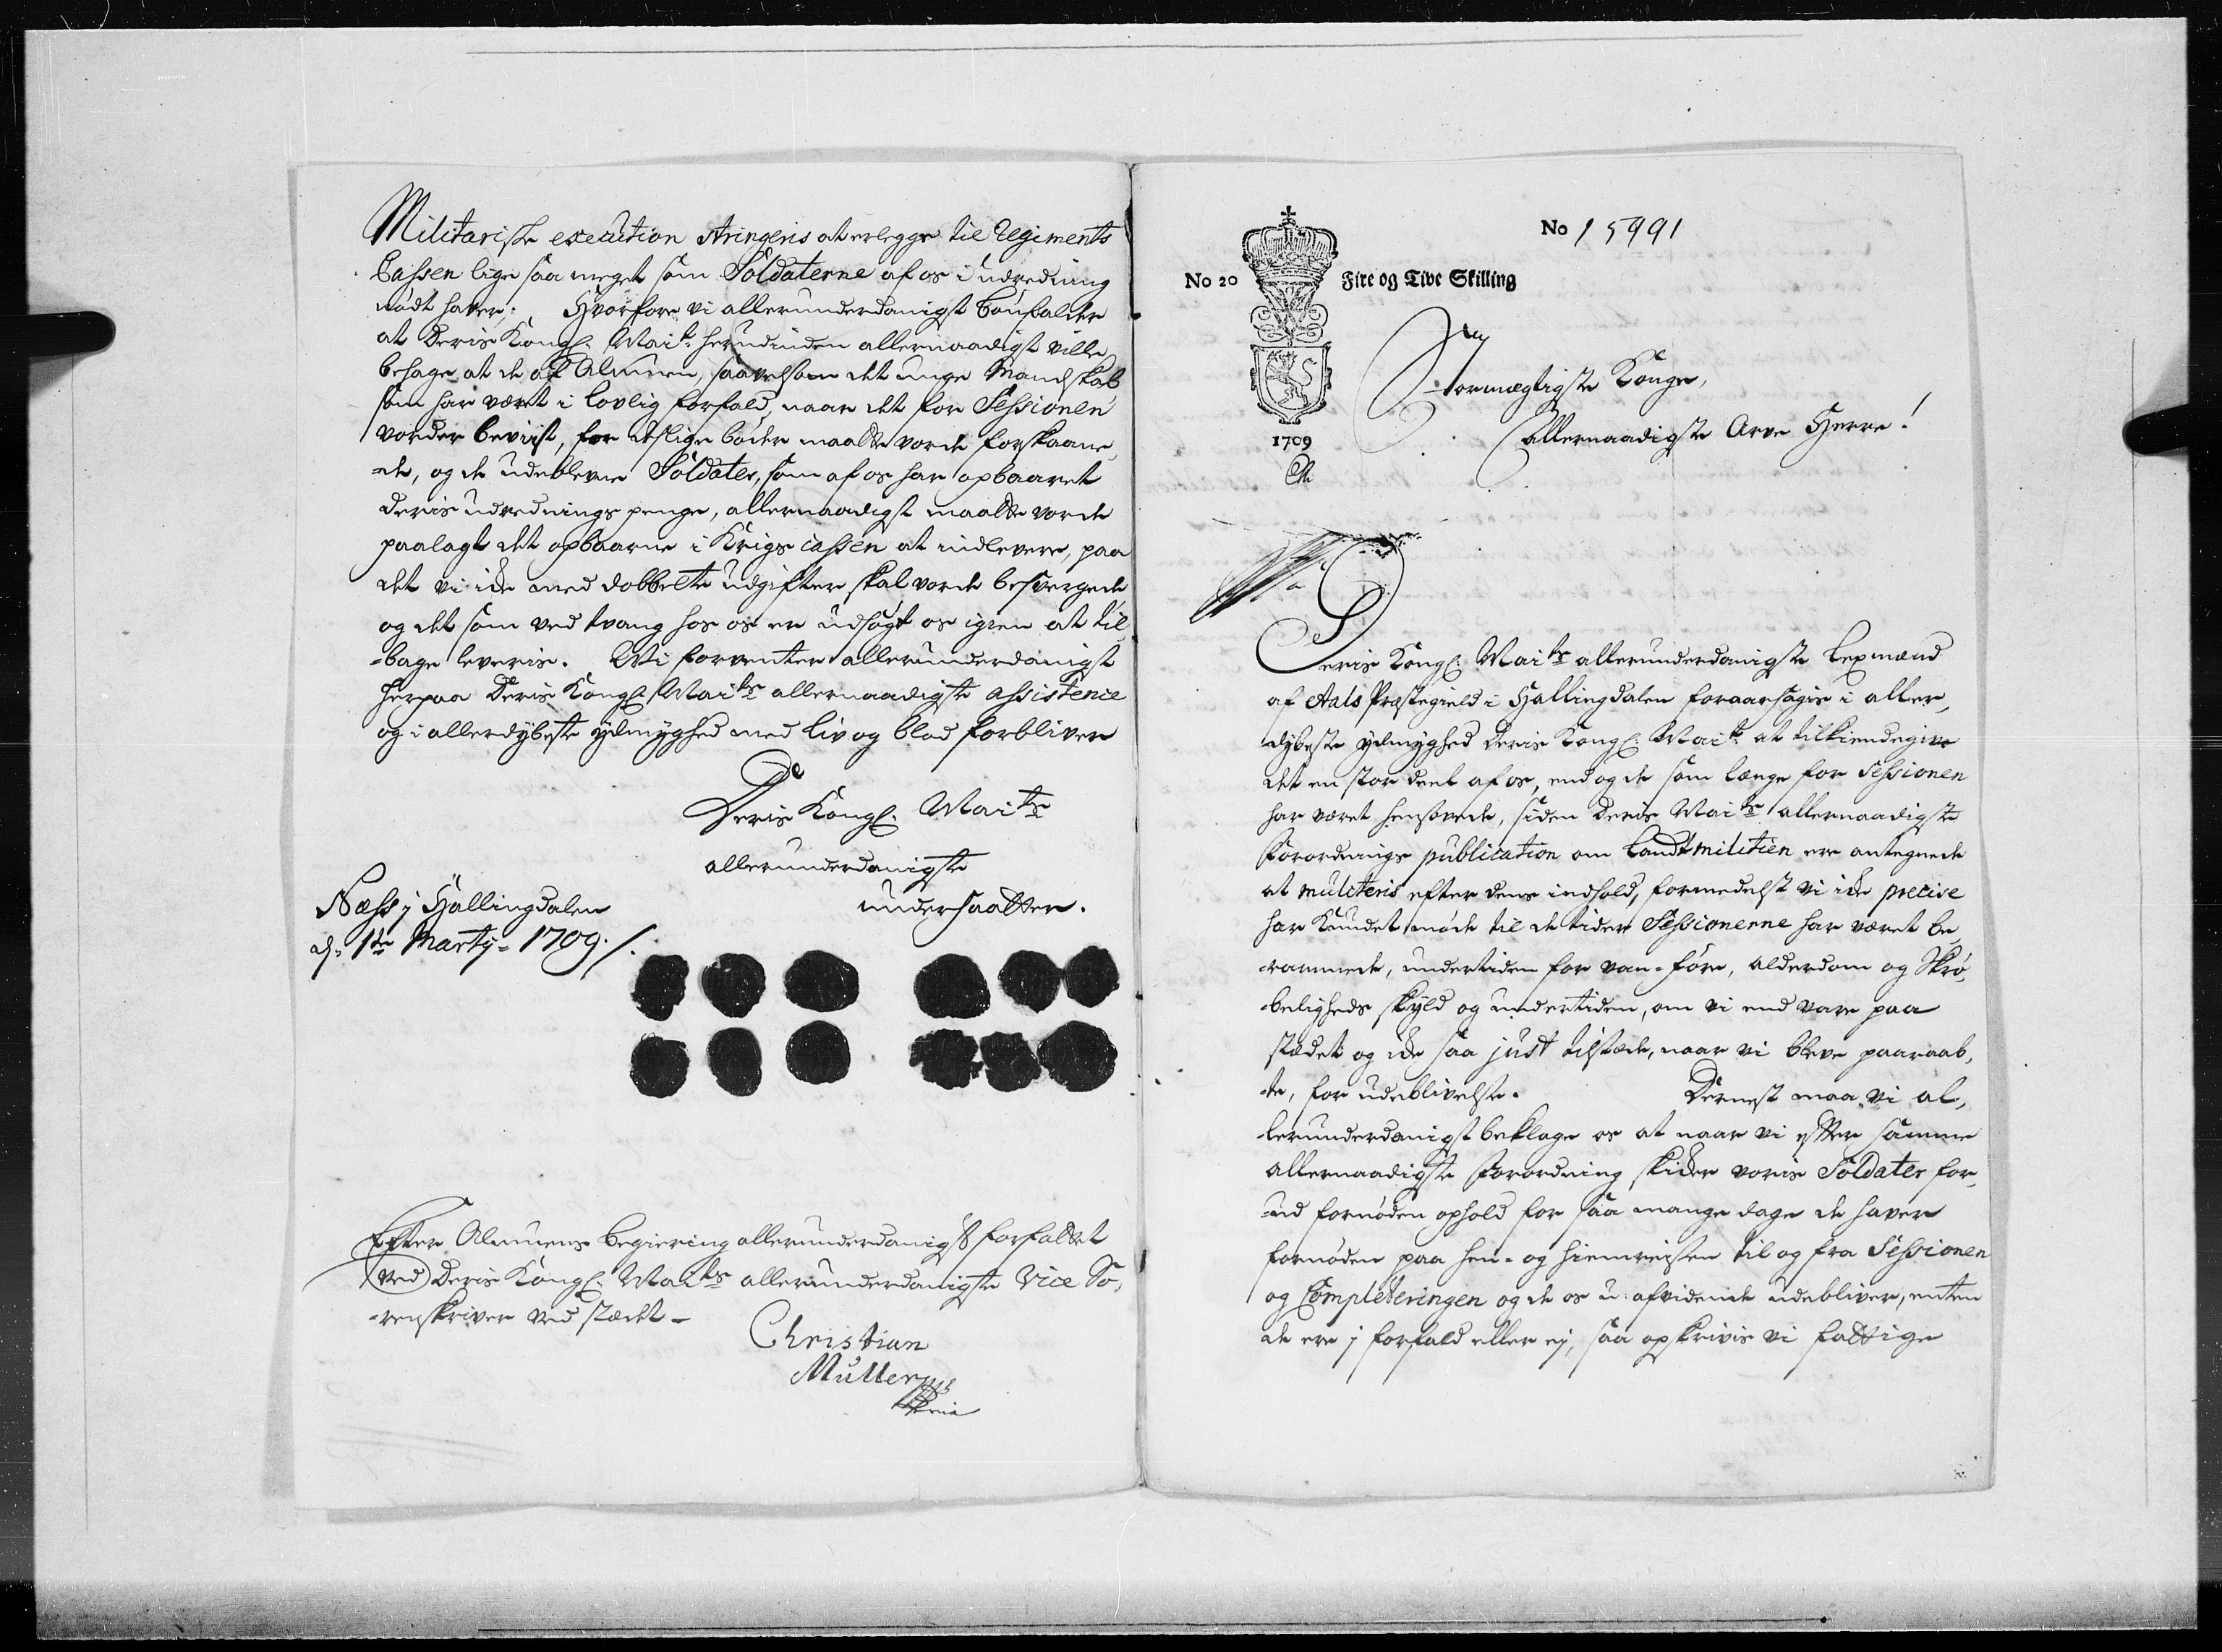 Militariske execution stringeris at erlegge til Regiments
Cassen lige saa meget som Soldaterne af os i udredning
nødt haver; Hvorfore vi allerunderdanigst bønfalder
at Deris Kongl. Mait. herudinden allernaadigst ville
behage at de af Almuen, saavelsom det unge Mandskab
som har været i lovlig forfald, naar det for Sessionen
vorder beviist, for deslige bøder maatte vorde forskaane¬
-de, og de udeblevne Soldater, som af os har opbaaret
deris udrednings penge, allernaadigst maatte vorde
paalagt det opbaarne i Krigs cassen at indlevere, paa
det vi icke med dobbelte udgifter skal vorde besvergede
og det som ved tvang hos os er udsøgt os igien at til¬
-bage leveris. Vi forventer allerunderdanigst
herpaa Deris Kongl. Maits allernaadigste assistence
og i allerdybeste ydmyghed med liv og blod forbliver
Deris Kongl. Maits
allerunderdanigste
undersaatter.
Næss i Hallingdalen
d. 1de Marty 1709 ./.
Efter Almuens begiering allerunderdanigst forfattet
ved Deris Kongl. Maits allerunderdanigste Vice So¬
-renskriver ved stædet
Christian
Müller
No 15991
No 20 Fire og Tive Skilling
1709
Stormægtigste Konge,
Allernaadigste Arve Herre!
Deris Kongl. Maits allerunderdanigste Lexmænd
af Aals Præstegield i Hallingdalen foraarsagis i aller¬
dybeste ydmyghed Deris Kongl. Mait. at tilkiendegive
det en stor deel af os, end og de som længe for Sessionen
har været hensovede, siden Deris Maits allernaadigste
Forordnings publication om Landtmilitien ere antegnede
at mulcteris efter dens indhold, formedelst vi icke precise
har kundet møde til de tider Sessionerne har været be¬
-rammede, undertiden for van-føre, alderdom og Skrø¬
-beligheds skyld og undertiden, om vi end vare paa
stædet og icke saa just tilstæde, naar vi bleve paaraab¬
-te, for udeblivelse. Dernest maa vi al¬
-lerunderdanigst beklage os at naar vi efter samme
allernaadigste Forordning skicker voris Soldater for¬
-ud fornøden ophold for saa mange dage de haver
fornøden paa hen- og hiemreisen til og fra Sessionen
og Completeringen og de os u-afvidende udebliver, enten
de ere i forfald eller ej, saa opskrivis vi fattige